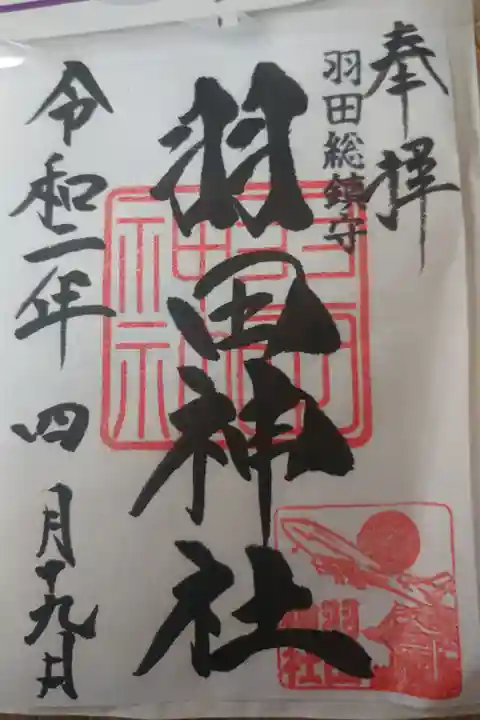 奉拝
羽田総鎮守
羽田神社
令和二年四月十九日
羽田神社
羽田神社